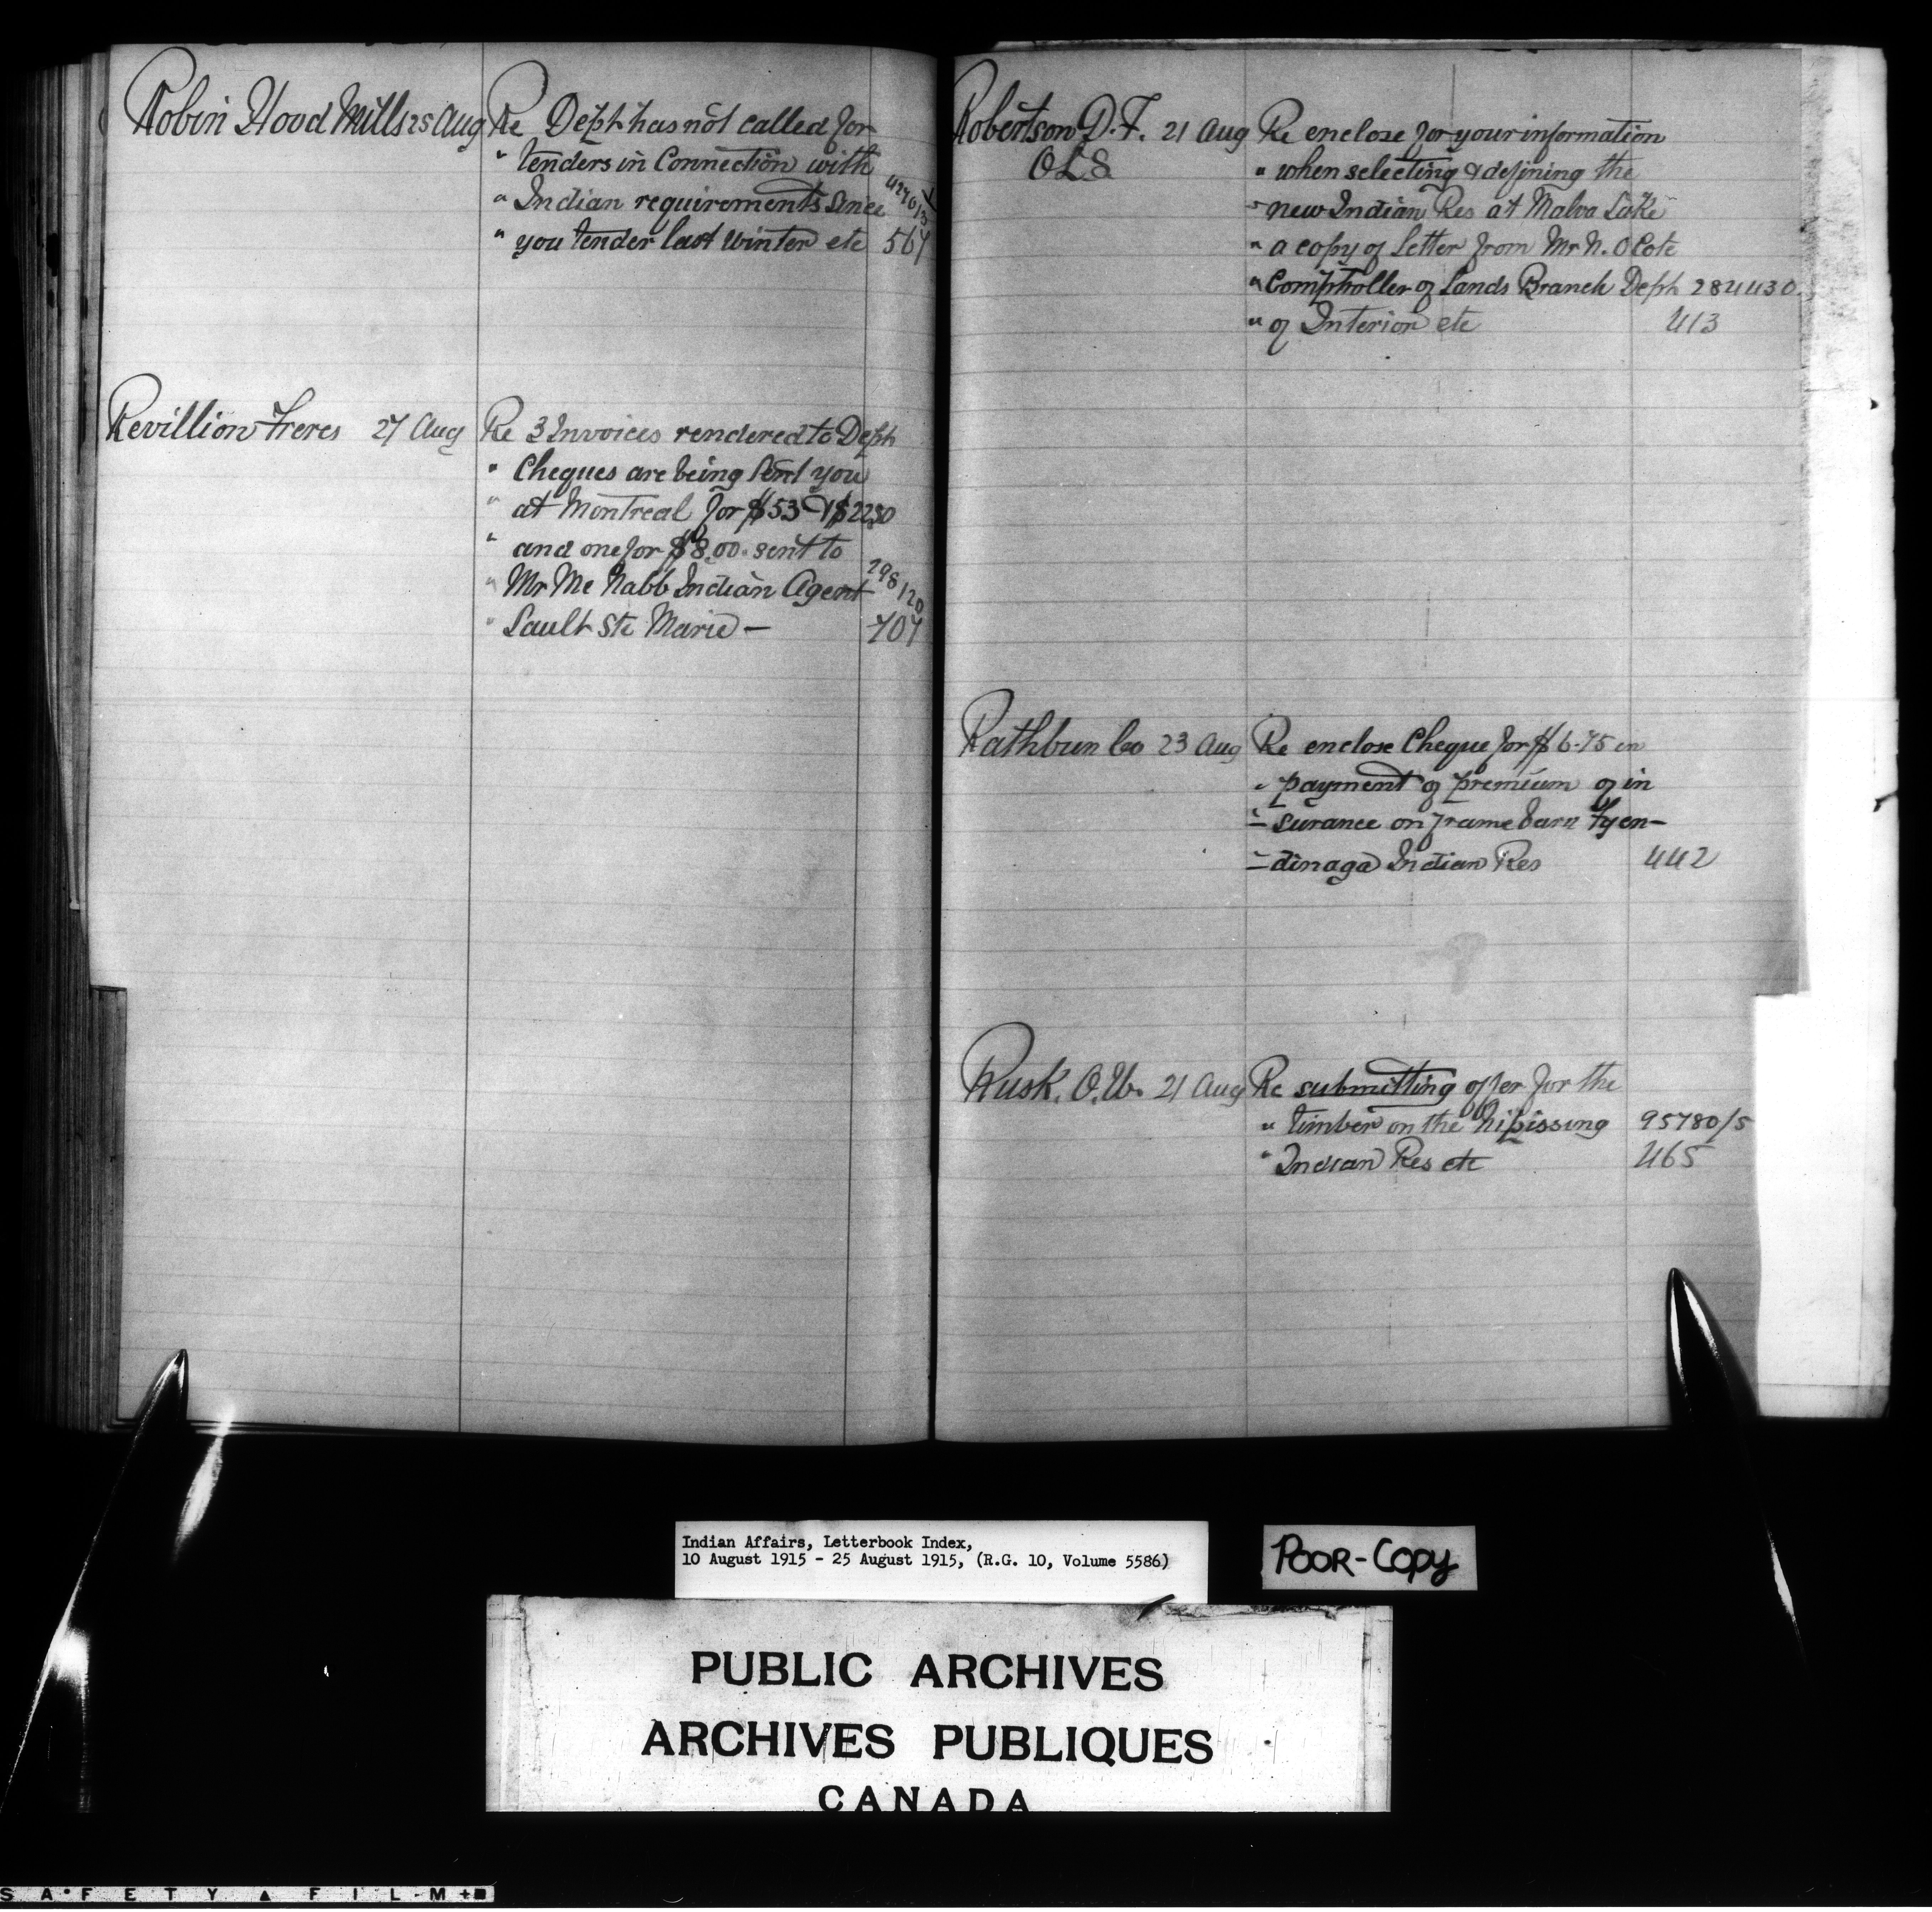 Robin Hood Mills 25 Aug Re Dept has not called for
" tenders in Connection with
" Indian requirements since
" you tender last winter etc 567
Revillion Freres 27 Aug Re 3 Invoices rendered to Dept
" Cheques are being sent you
" at Montreal for $53 & $22.50
" and one for $8.00 sent to
" Mr Mc Nabb Indian Agent 298/120
" Sault Ste Marie — 707
Robertson D.F. 21 Aug Re enclose for your information
OLS " when selecting & defining the
" new Indian Res at Malva Lake
" a copy of letter from Mr N. O Cote
" Comptroller of Lands Branch Dept 284430.
" of Interior etc 413
Rathbun Co 23 Aug Re enclose Cheque for $6-75 in
" payment of premium of in
- surance on frame barn Tyen-
- dinaga Indian Res 442
Rusk. O.W. 21 Aug Re submitting offer for the
" timber on the Nipissing 95780/5
" Indian Res etc 465
Indian Affairs, Letterbook Index,
10 August 1915 - 25 August 1915, (R.G. 10, Volume 5586)
POOR-COPY
PUBLIC ARCHIVES
ARCHIVES PUBLIQUES
CANADA
SAFETY ▲ FILM